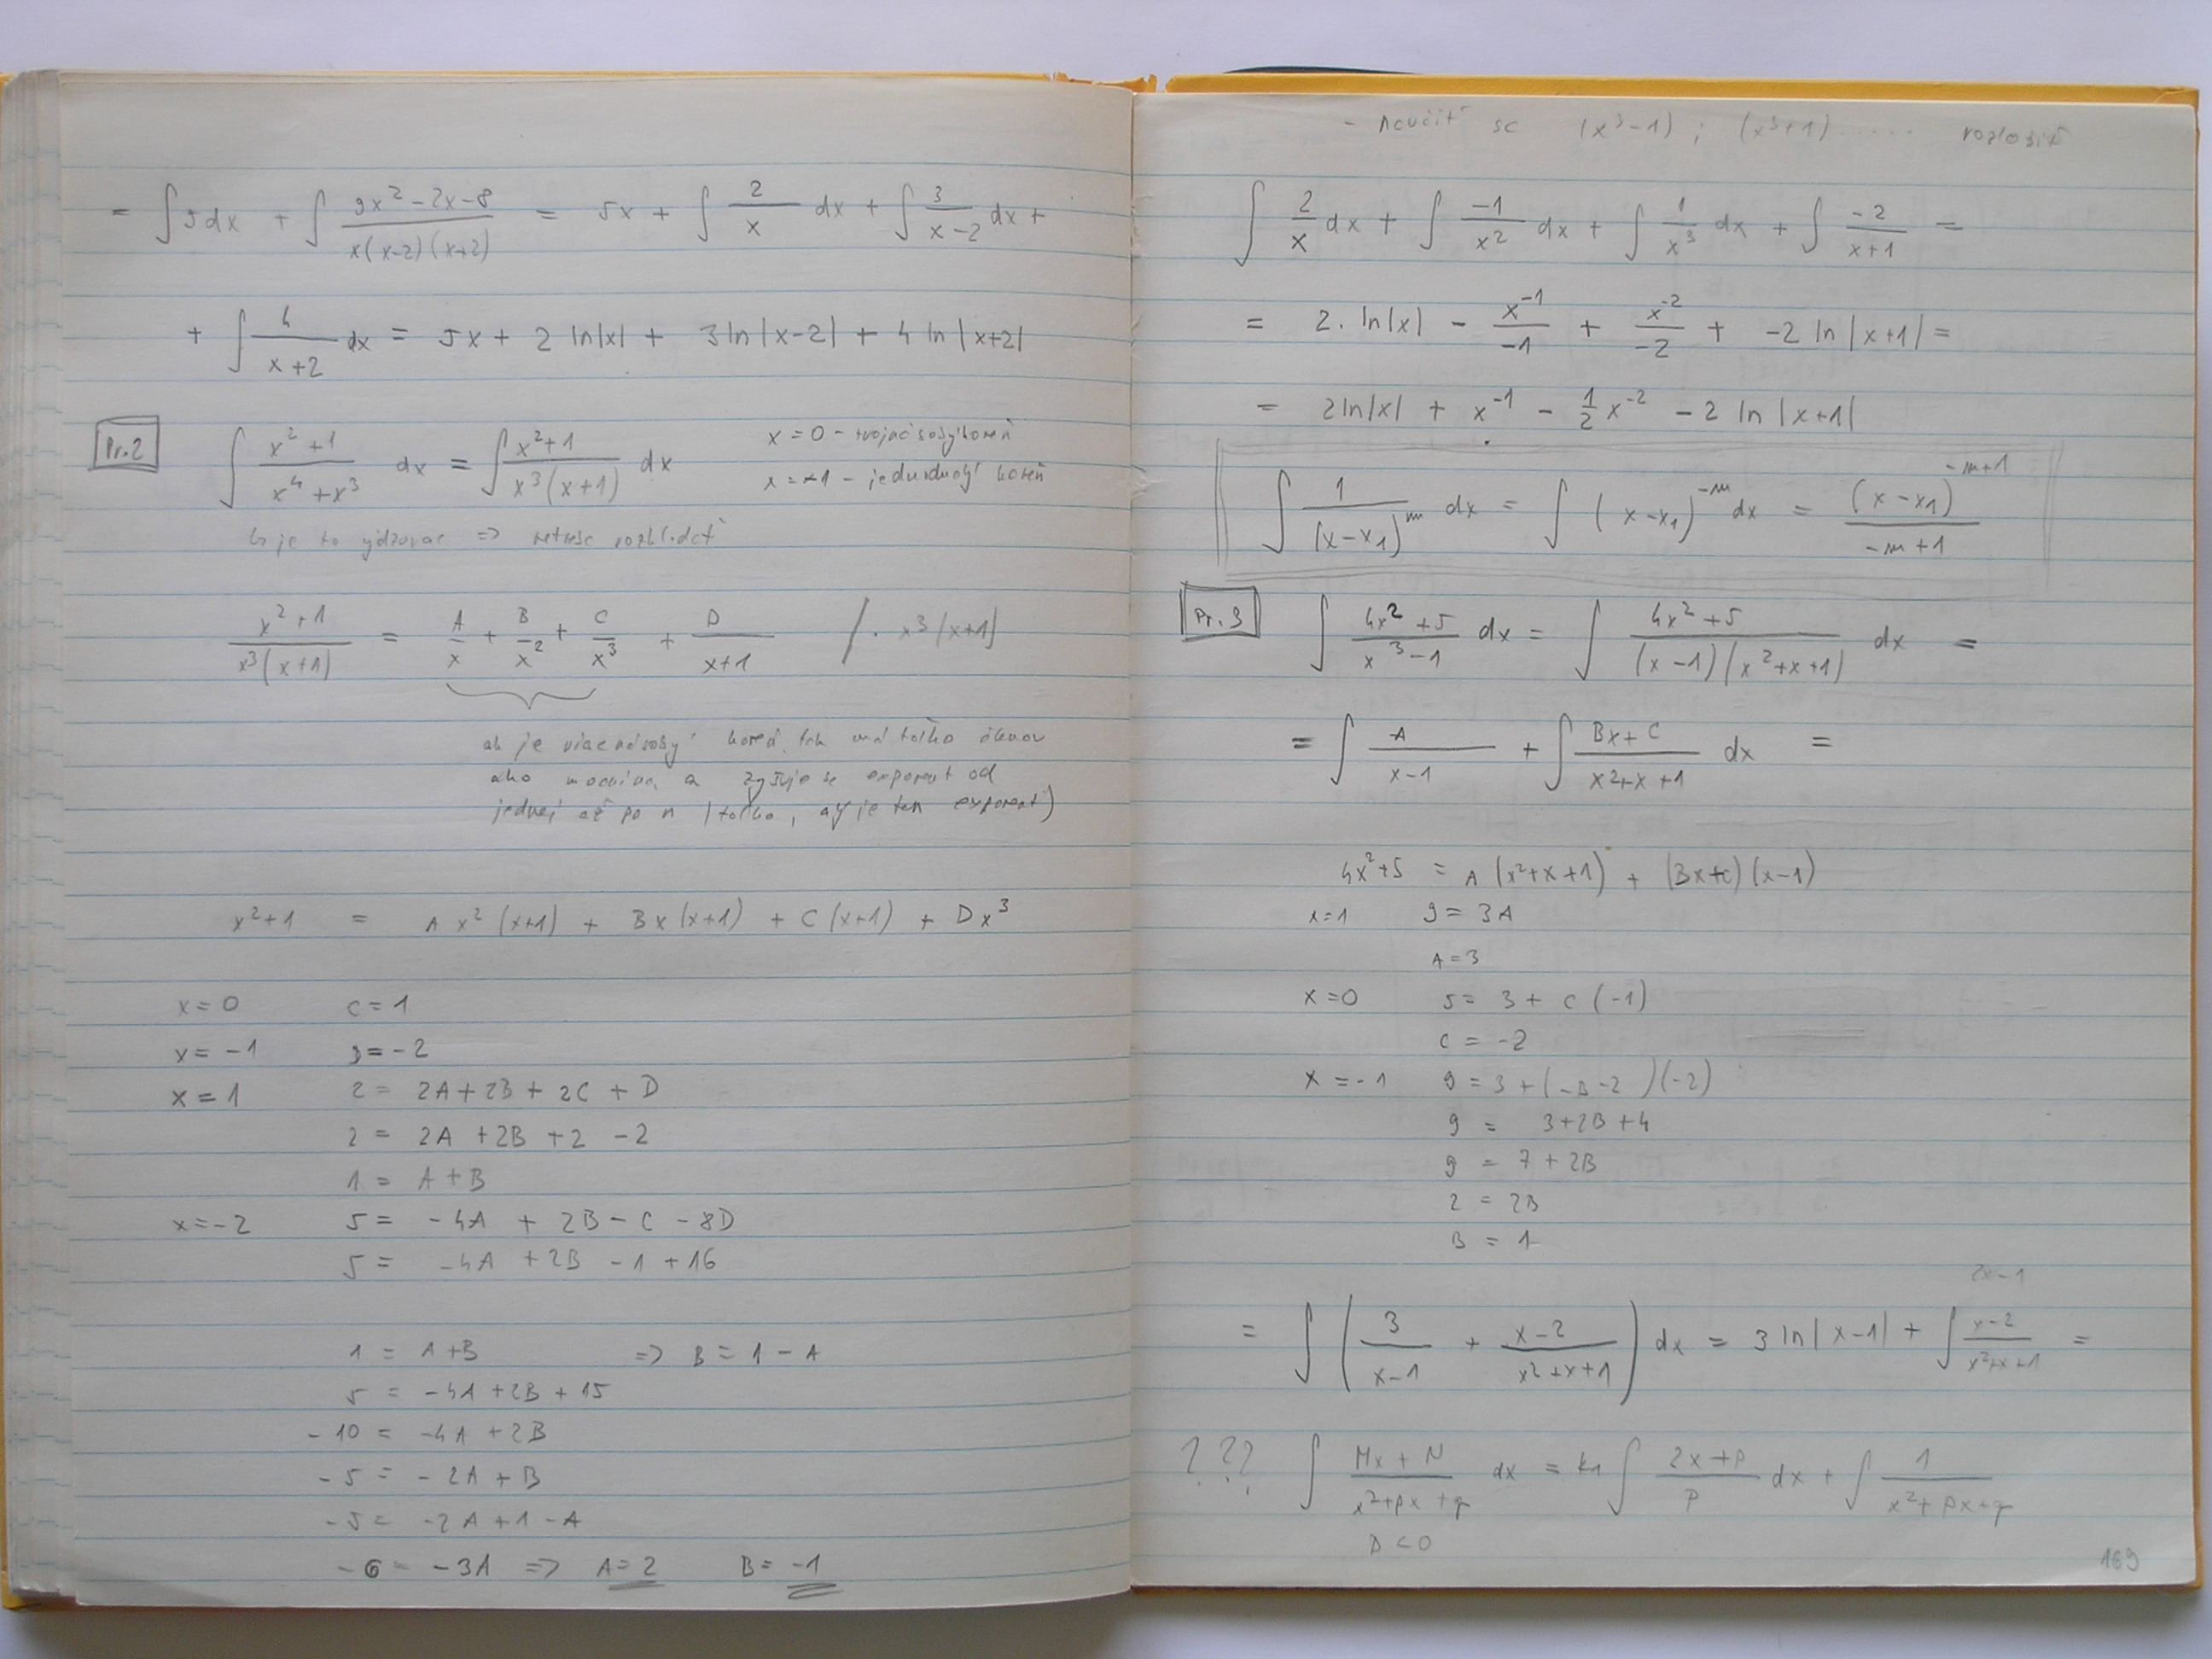 = ∫ 5 dx + ∫ (9x² - 2x - 8)/(x(x-2)(x+2)) = 5x + ∫ 2/x dx + ∫ 3/(x-2) dx +
+ ∫ 4/(x+2) dx = 5x + 2 ln|x| + 3 ln|x-2| + 4 ln|x+2|
Pr.2 ∫ (x²+1)/(x⁴+x³) dx = ∫ (x²+1)/(x³(x+1)) dx
x = 0 - trojnásobný koreň
x = -1 - jednoduchý koreň
je to => netreba
(x²+1)/(x³(x+1)) = A/x + B/x² + C/x³ + D/(x+1) /· x³(x+1)
ak je viacnásobný koreň, tak má toľko členov
ako mocnina, a zvyšuje se exponent od
jednej až po n (toľko, aký je ten exponent)
x²+1 = Ax²(x+1) + Bx(x+1) + C(x+1) + Dx³
x = 0 C = 1
x = -1 D = -2
x = 1 2 = 2A + 2B + 2C + D
2 = 2A + 2B + 2 - 2
1 = A + B
x = -2 5 = -4A + 2B - C - 8D
5 = -4A + 2B - 1 + 16
1 = A+B => B = 1 - A
5 = -4A + 2B + 15
-10 = -4A + 2B
-5 = -2A + B
-5 = -2A + 1 - A
-6 = -3A => A = 2 B = -1
- naučiť se (x³-1) ; (x³+1) ..... rozložiť
∫ 2/x dx + ∫ -1/x² dx + ∫ 1/x³ dx + ∫ -2/(x+1) =
= 2. ln|x| - x⁻¹/-1 + x⁻²/-2 + -2 ln|x+1| =
= 2ln|x| + x⁻¹ - 1/2 x⁻² - 2 ln|x+1|
∫ 1/(x-x₁)ᵐ dx = ∫ (x-x₁)⁻ᵐ dx = (x-x₁)⁻ᵐ⁺¹/(-m+1)
Pr.3 ∫ (4x²+5)/(x³-1) dx = ∫ (4x²+5)/((x-1)(x²+x+1)) dx =
= ∫ A/(x-1) + ∫ (Bx+C)/(x²+x+1) dx =
4x²+5 = A(x²+x+1) + (Bx+C)(x-1)
x=1 9 = 3A
A = 3
x = 0 5 = 3 + C(-1)
C = -2
x = -1 9 = 3 + (-B-2)(-2)
9 = 3+2B+4
9 = 7+2B
2 = 2B
B = 1
2x-1
= ∫ (3/(x-1) + (x-2)/(x²+x+1)) dx = 3 ln|x-1| + ∫ (x-2)/(x²+x+1) =
??? ∫ (Mx+N)/(x²+px+q) dx = k₁ ∫ (2x+p)/p dx + ∫ 1/(x²+px+q)
D < 0
169